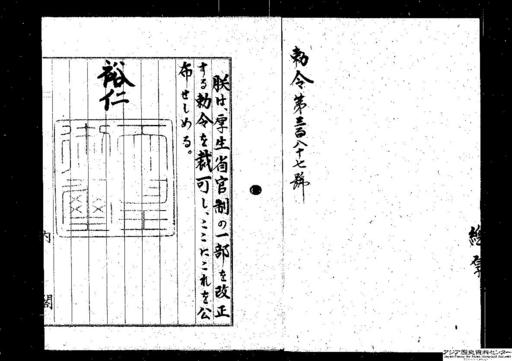 勅令第三百八十七號
朕は、厚生省官制の一部を改正
する勅令を裁可し、ここにこれを公
布せしめる。
裕仁
天皇御璽
内閣
アジア歴史資料センター